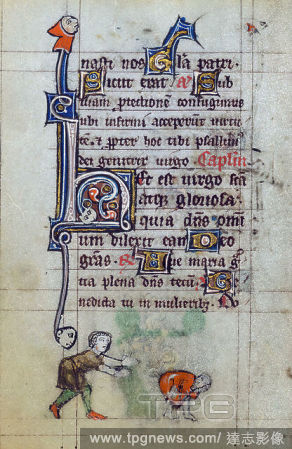 nasti nos Gła patri.
Sicut erat & Sub
tuam ptectionē confugimus
ubi infirmi acceperunt virtu
tē. & ꝓpter hoc tibi psallim
dei genitrix virgo. Capitłm
Hec est virgo scā
atqȝ gloriosa
quia dn̄s om̄i
um dilexit eam Deo
grās. & Aue maria g̃
tia plena dn̄s tecū. Be
nedicta tu in mulieribȝ
TPG
www.tpgnews.com / 達志影像